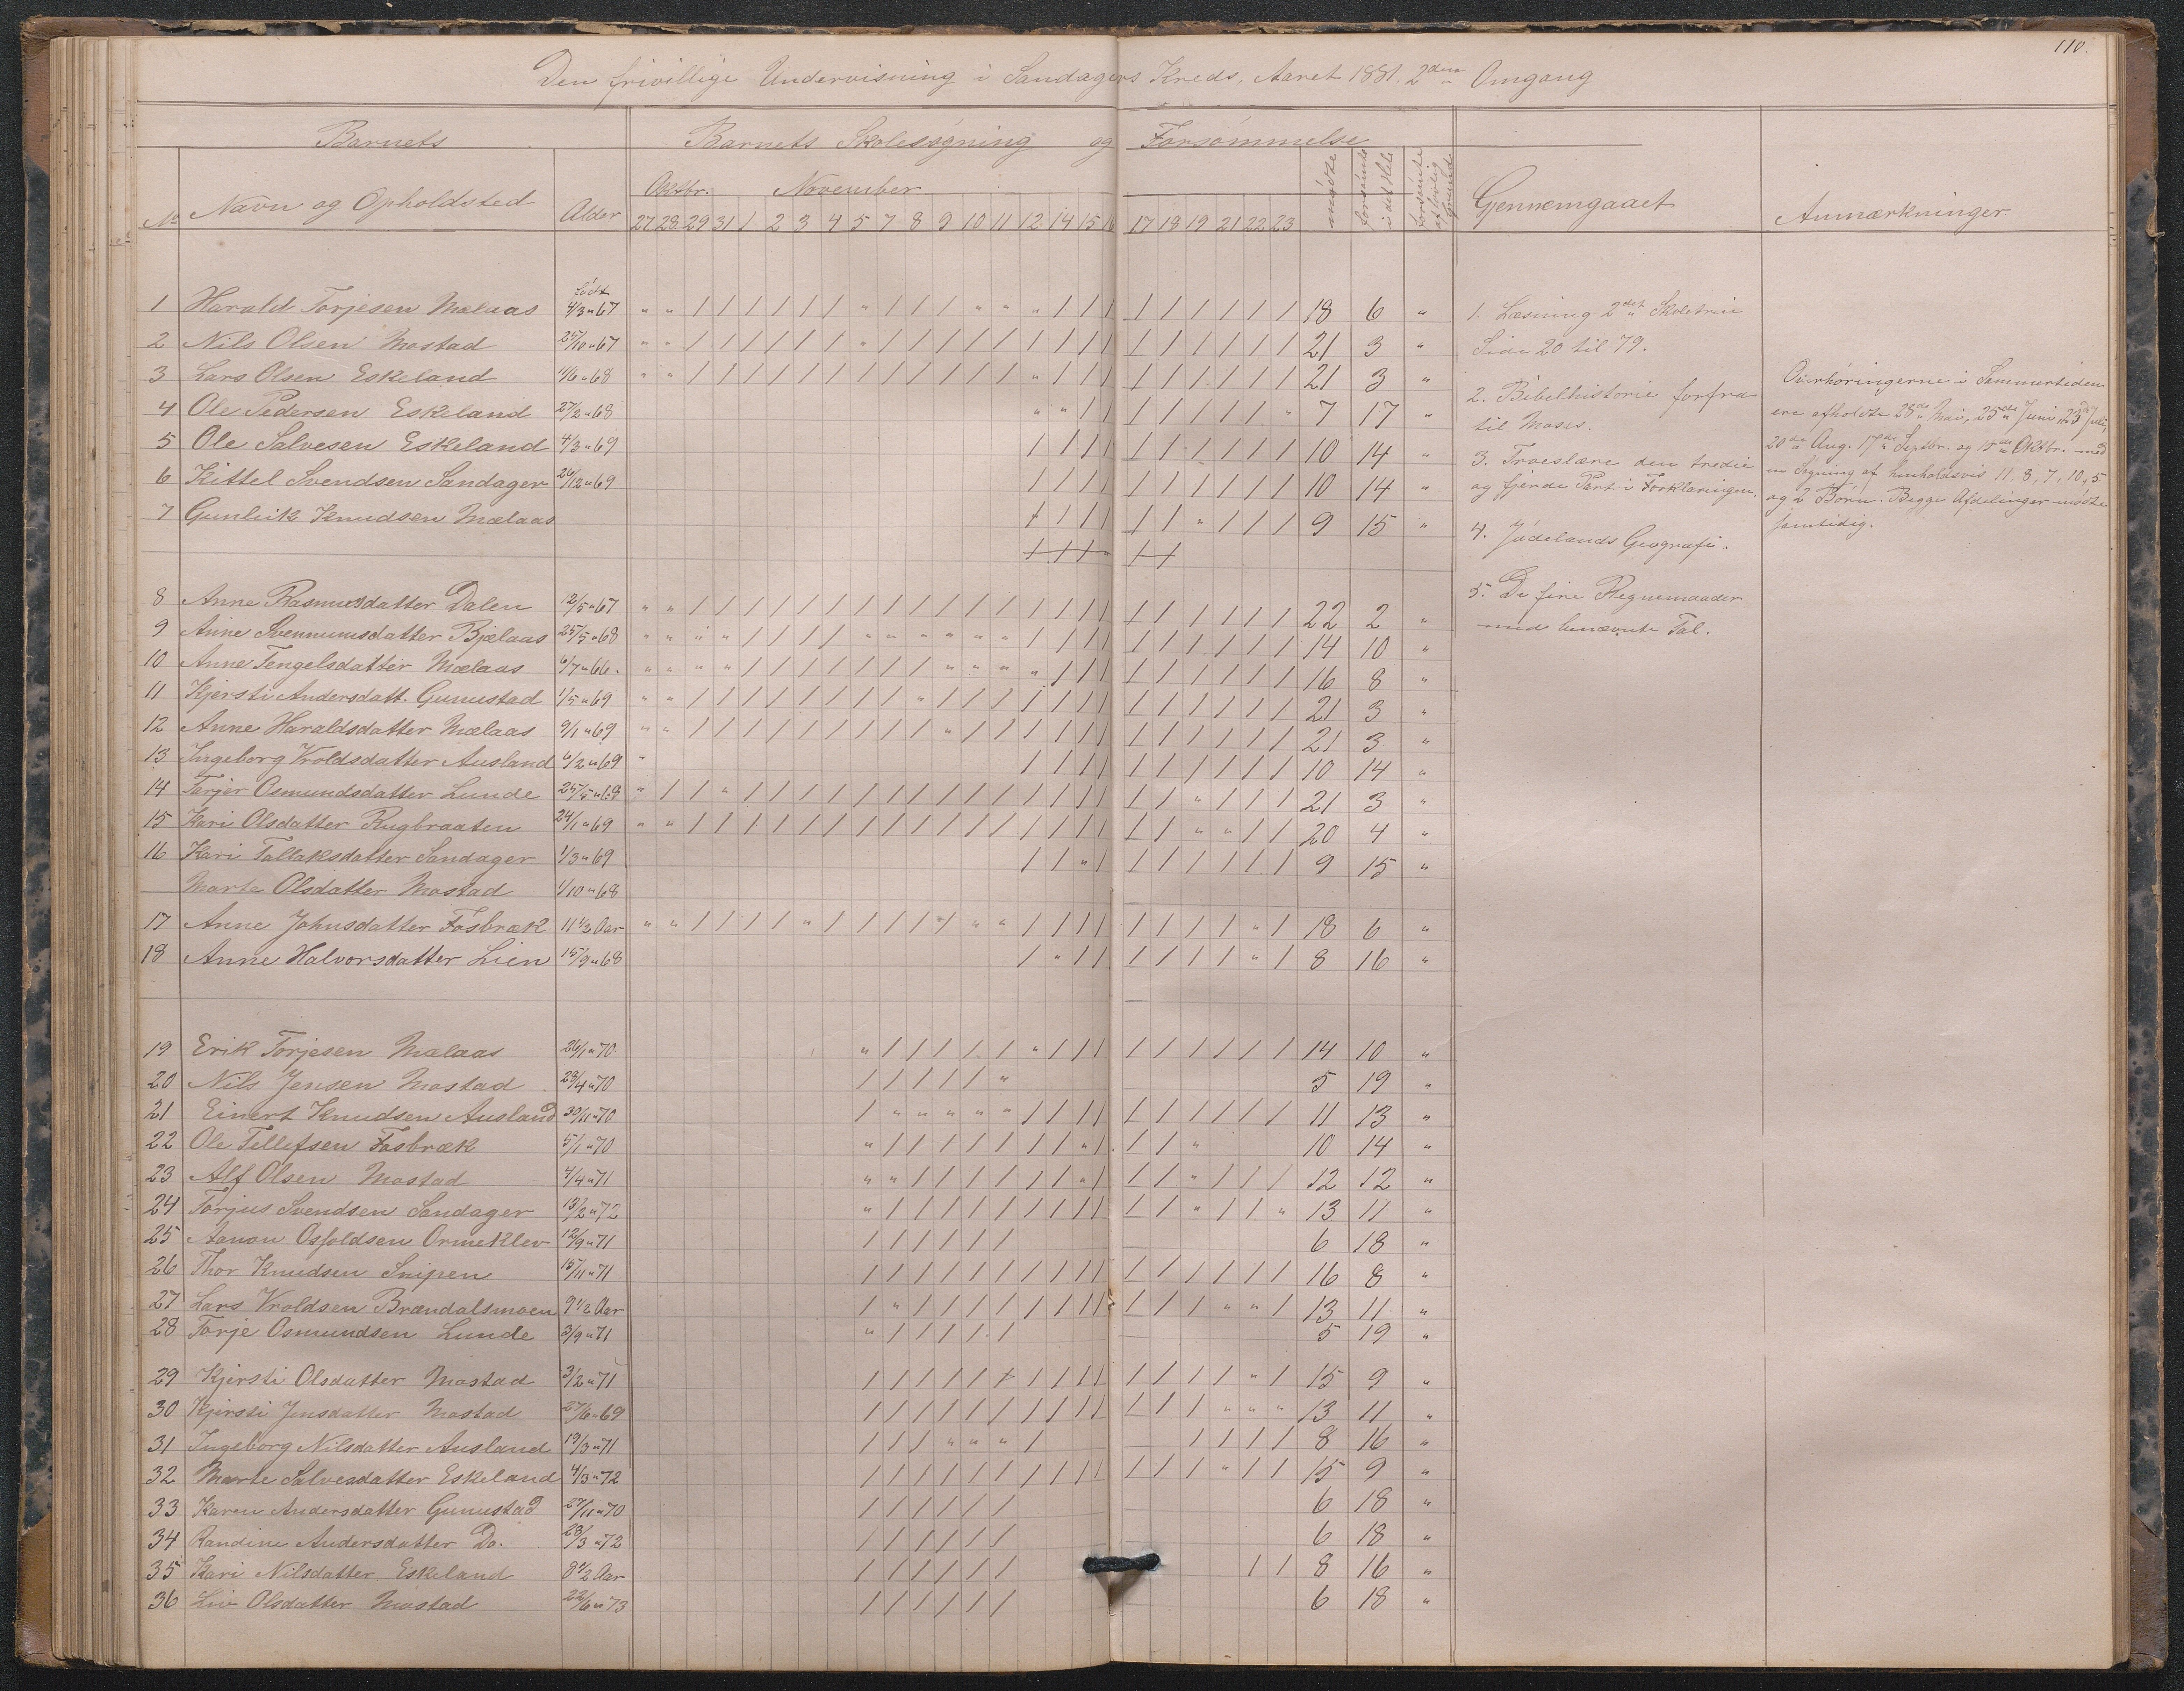 110.
Den frivillige Undervisning i Sandagers Kreds, Aaret 1881. 2den Omgang
Barnets Barnets Skolesøgning og Forsømmelse
No Navn og Opholdsted Alder Oktbr. November mødte forsømte i det Hele forsømte af lovlig Grund Gjennemgaaet Anmærkninger.
27 28 29 31 1 2 3 4 5 7 8 9 10 11 12 14 15 16 17 18 19 21 22 23
født
1 Harald Torjesen Mælaas 4/3 " 67 " " / / / / / / " / / / " " " / / / / / / / / / 18 6 "
2 Nils Olsen Mostad 25/10 " 67 " " / / / / / / " / / / / / / / / / / / / / / / 21 3 "
3 Lars Olsen Eskeland 11/6 " 68 " " / / / / / / / / / / / / " / / / / / / / / / 21 3 "
4 Ole Pedersen Eskeland 27/2 " 68 " " / / / / / / / " 7 17 "
5 Ole Salvesen Eskeland 4/3 " 69 / / / / / / / / / / 10 14 "
6 Kittel Svendsen Sandager 26/12 " 69 / / / / / / / / / / 10 14 "
7 Gunleik Knudsen Mælaas / / / / / / " / / / 9 15 "
8 Anne Rasmusdatter Dalen 12/5 " 67 " " / / / / / / / / / / / / / / / / / / / / / / 22 2 "
9 Anne Svennumsdatter Bjælaas 25/5 " 68 " " " " / / / / " " " " " " / / / / / / / / / / 14 10 "
10 Anne Tengelsdatter Mælaas 6/7 " 66. " " " " / / / / / / / " " " " / / / / / / / / / 16 8 "
11 Kjersti Andersdatt. Gunustad 1/5 " 69 " " / / / / / / / / " / / / / / / / / / / / / / 21 3 "
12 Anne Haraldsdatter Mælaas 9/1 " 69 " " / / / / / / / / / " / / / / / / / / / / / / 21 3 "
13 Ingeborg Vroldsdatter Ausland 6/2 " 69 " / / / / / / / / / / 10 14 "
14 Torjer Osmundsdatter Lunde 25/5 " 68 " / / " / / / / / / / / / / / / / / / / " / / / 21 3 "
15 Kari Olsdatter Rugbraaten 24/1 " 69 " " / / / / / / / / / / / / / / / / / / " " / / 20 4 "
16 Kari Tallaksdatter Sandager 1/3 " 69 / / " / / / / / / / 9 15 "
Marte Olsdatter Mostad 1/10 " 68
17 Anne Johnsdatter Fosbræk 11 1/2 Aar " " / / / / " / / / / / " " / / / / / / / / " / 18 6 "
18 Anne Halvorsdatter Lien 15/9 " 68 / " / / / / / / " / 8 16 "
19 Erik Torjesen Mælaas 26/1 " 70 " / / / / / " / / / / / / / / / 14 10 "
20 Nils Jensen Mostad 23/4 " 70 / / / / / " 5 19 "
21 Einert Knudsen Ausland 30/11 " 70 / " " " " " / / / / / / / / / / 11 13 "
22 Ole Tellefsen Fosbræk 5/1 " 70 " / / / / / / / " / / / " 10 14 "
23 Alf Olsen Mostad 4/4 " 71 " " / / / / / / " / / / " / / / 12 12 "
24 Torjus Svendsen Sandager 13/2 " 72 " / / / / / / / / / / / " / / " 13 11 "
25 Aanon Osfoldsen Ormeklev 12/9 " 71 / / / / / / 6 18 "
26 Thor Knudsen Snipen 15/11 " 71 / / / / / / / / / / / / / / / / 16 8 "
27 Lars Vroldsen Brændalsmoen 9 1/2 Aar / " / / / / / / / / / / / " " / 13 11 "
28 Torje Osmundsen Lunde 3/9 " 71 " / / / / / 5 19 "
29 Kjersti Olsdatter Mostad 3/2 " 71 / / / / / / / / / / / / / / " / 15 9 "
30 Kjersti Jensdatter Mostad 27/6 " 69 / / / / / / / / / / / / / " " " 13 11 "
31 Ingeborg Nilsdatter Ausland 19/3 " 71 / / / " " " / / / / / 8 16 "
32 Marte Salvesdatter Eskeland 4/3 " 72 / / / / / / / / / / / / / " / / 15 9 "
33 Karen Andersdatter Gunustad 27/11 " 70 / / / / / / 6 18 "
34 Randine Andersdatter Do. 28/3 " 72 / / / / / / 6 18 "
35 Kari Nilsdatter Eskeland 8 1/2 Aar / / / / / / / / 8 16 "
36 Liv Olsdatter Mostad 22/6 " 73 / / / / / / 6 18 "
1. Læsning 2det Skoletrin
Side 20 til 79.
2. Bibelhistorie forfra
til Moses.
3. Troeslære den tredie
og fjerde Part i Forklaringen.
4. Jødelands Geografi.
5. De fire Regnemaader
med benævnte Tal.
Overhøringerne i Sommertiden
ere afholdte 28de Mai, 25de Juni, 23de Juli,
20de Aug. 17de Septbr. og 15de Oktbr. med
en Søgning af henholdsvis 11, 8, 7, 10, 5
og 2 Børn. Begge Afdelinger mødte
samtidig.